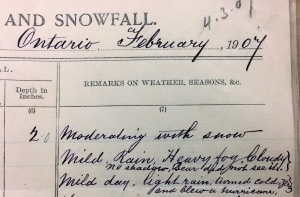 4.3.07
AND SNOWFALL.
Ontario, February, 1907
L.
Depth in
Inches.
REMARKS ON WEATHER, SEASONS, &c.
(6)
(7)
2 0 Moderating with snow
Mild, Rain, Heavy fog, Cloudy
no shadow, Bear did not see it!
Mild day, light rain, turned cold,
and blew a hurricane